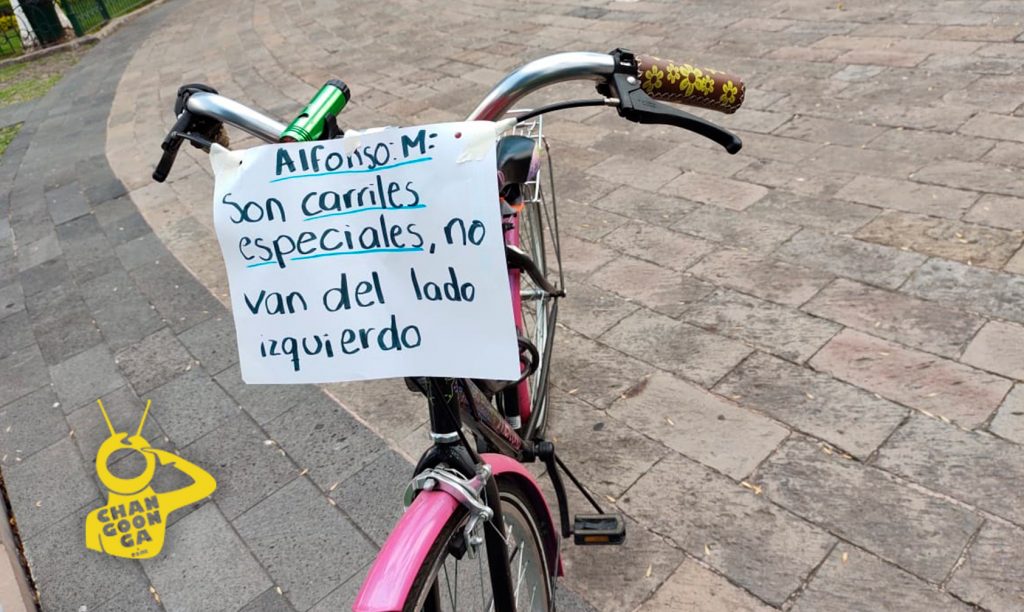 Alfonso: M:
Son carriles
especiales, no
van del lado
izquierdo
CHAN
GOON
GA